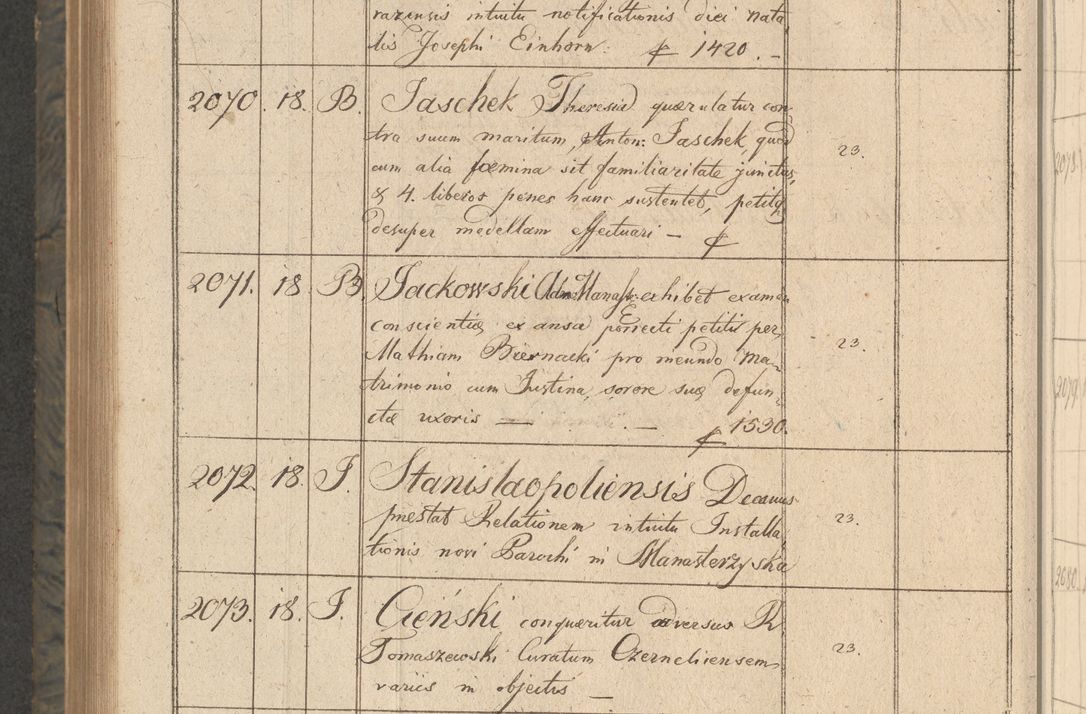 razensis intuitu notificationis diei nata
lis Josephi Einhorn: 1420. -
2070. 18. B. Jaschek Theresia quærulatur con
tra suum maritum, Anton: Jaschek, quod
cum alia fœmina sit familiaritate junctus,
& 4. liberos penes hanc sustentet, petitq
desuper medellam effectuari - 23.
2071. 18. B. Jackowski exhibet examen
conscientiæ ex ansa porrecti petiti per
Mathiam Biernacki pro ineundo Ma-
trimonio cum Justina, sorore suæ defun-
ctæ uxoris - 1530. 23.
2072. 18. J. Stanislaopoliensis Decanus
præstat Relationem intuitu Installa
tionis novi Parochi in Manasterzyska 23.
2073. 18. J. Cieński conquæritur adversus R
Tomaszewski Curatum Czerneliiensem
variis in objectis - 23.
2079.
2080.